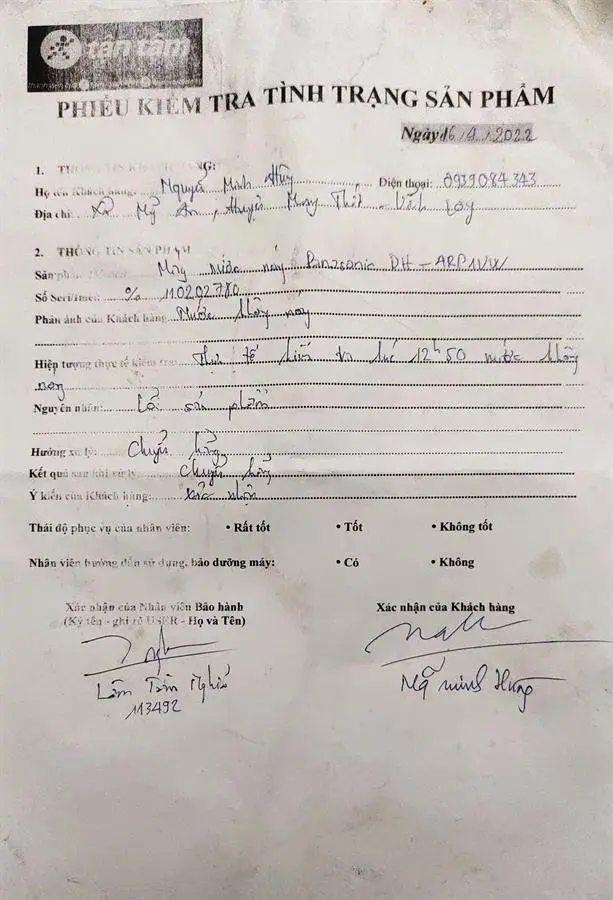 tận tâm
PHIẾU KIỂM TRA TÌNH TRẠNG SẢN PHẨM
Ngày 16/4/2022
1. THÔNG TIN KHÁCH HÀNG:
Họ tên Khách hàng: Nguyễn Minh Hùng Điện thoại: 0939084343
Địa chỉ: Xã Mỹ An, Huyện Mang Thít, Vĩnh Long
2. THÔNG TIN SẢN PHẨM
Sản phẩm Máy nước nóng Panasonic DH-ARP1VW
Số Seri/Imei: % 110202780
Phản ánh của Khách hàng: Nước không nóng
Hiện tượng thực tế kiểm tra: Thực tế kiểm tra lúc 12h50 nước không
nóng
Nguyên nhân: Lỗi sản phẩm
Hướng xử lý: Chuyển hãng
Kết quả sau khi xử lý: Chuyển hãng
Ý kiến của Khách hàng: xác nhận
Thái độ phục vụ của nhân viên: • Rất tốt • Tốt • Không tốt
Nhân viên hướng dẫn sử dụng, bảo dưỡng máy: • Có • Không
Xác nhận của Nhân viên Bảo hành Xác nhận của Khách hàng
(Ký tên - ghi rõ USER - Họ và Tên)
Lâm Tấn Nghĩa
113492
minh Hùng